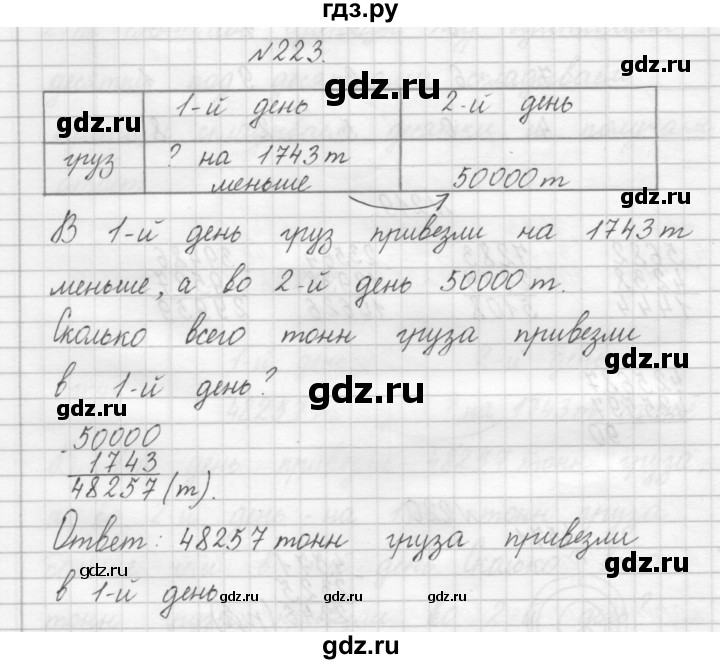 гдз.ру
№223.
1-й день 2-й день
gdz.ru
gdz.ru
груз ? на 1743 т
меньше 50000 т
gdz.ru
В 1-й день груз привезли на 1743 т
меньше, а во 2-й день 50000 т.
Сколько всего тонн груза привезли
gdz.ru
в 1-й день?
gdz.ru
gdz.ru
- 50000
1743
48257 (т).
Ответ: 48257 тонн груза привезли
gdz.ru
gdz.ru
в 1-й день
gdz.ru
gdz.ru
gdz.ru
gdz.ru